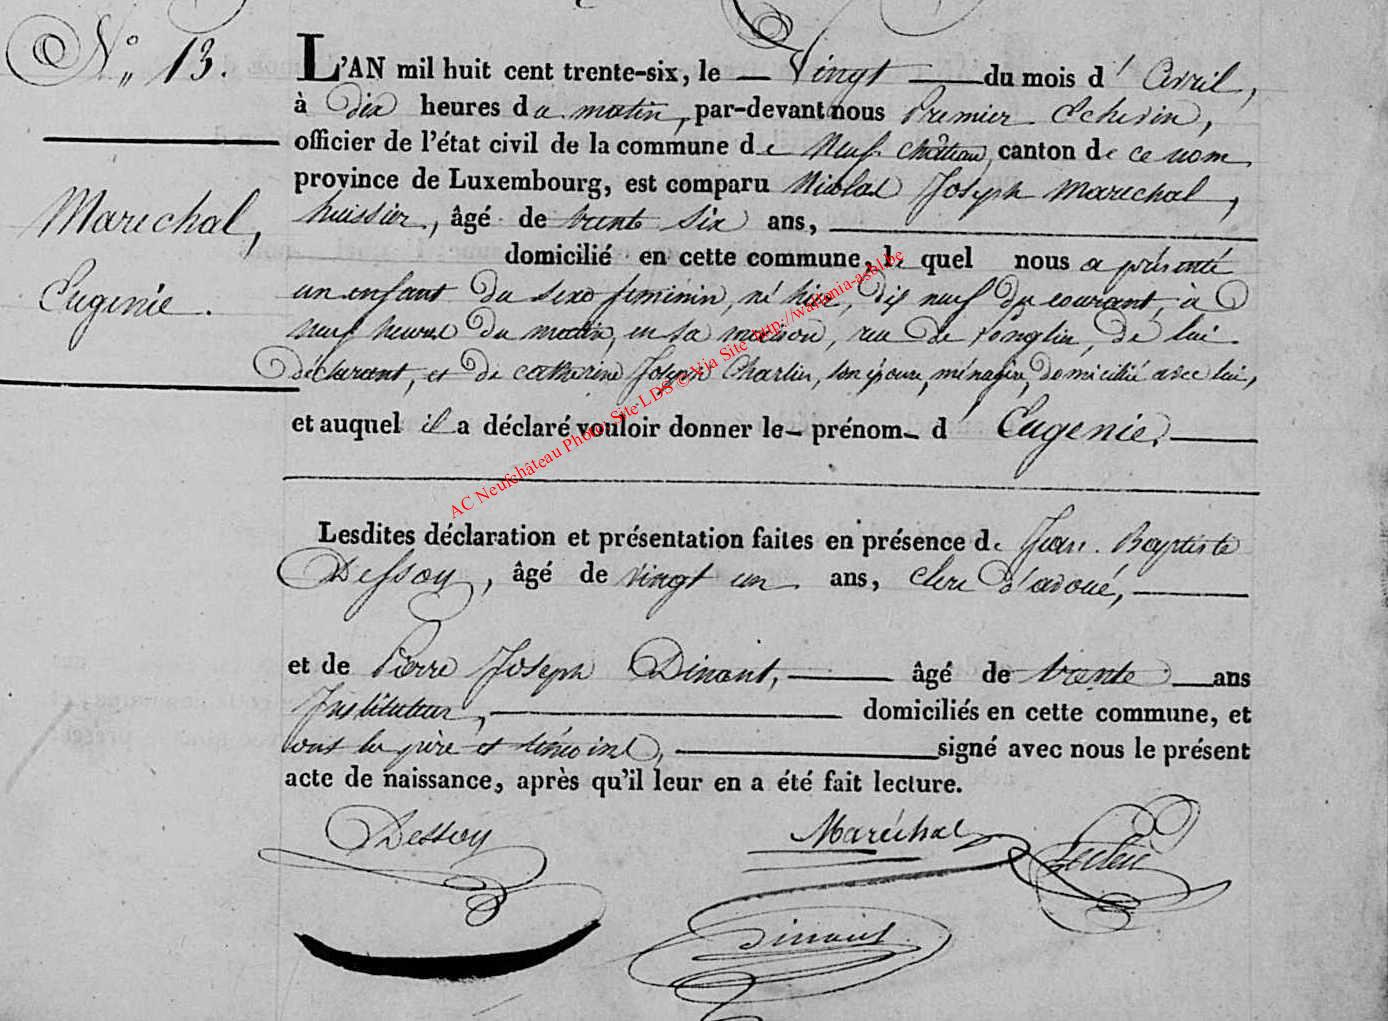 N° 13.
L'AN mil huit cent trente-six, le Vingt du mois d' Avril,
à Dix heures du matin, par-devant nous Premier Echevin,
officier de l'état civil de la commune de Neufchâteau, canton de ce nom
province de Luxembourg, est comparu Nicolas Joseph Marechal,
huissier, âgé de trente Six ans,
domicilié en cette commune, le quel nous a présenté
un enfant Du sexe feminin, né hier, Dix neuf du courant, à
neuf heures Du matin, en sa maison, rue De Longlier, De lui
déclarant, et De Catherine Joseph Charlier, son épouse, ménagère, domiciliée avec lui,
et auquel il a déclaré vouloir donner le prénom d' Eugenie.
Marechal,
Eugenie.
Lesdites déclaration et présentation faites en présence de Jean Baptiste
Dessoy, âgé de vingt un ans, clerc d'avoué,
et de Pierre Joseph Dinant, âgé de trente ans
Instituteur, domiciliés en cette commune, et
ont les père et témoins, signé avec nous le présent
acte de naissance, après qu'il leur en a été fait lecture.
Dessoy
Maréchal
Leclerc
Dinant
AC Neufchâteau Photo: Site LDS © Via Site http://wallonia-asbl.be